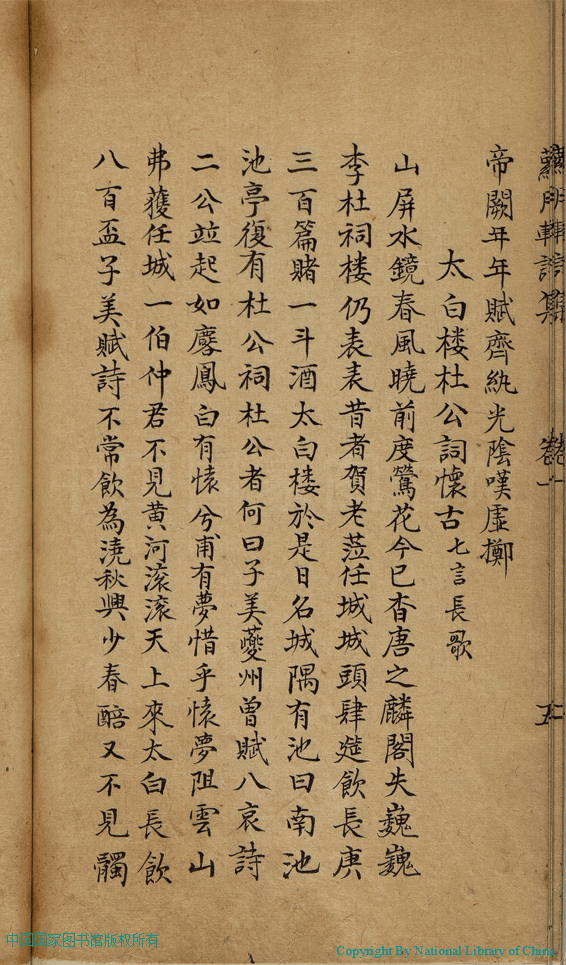 帝闕年年賦齊紈光陰嘆虛擲
太白楼杜公詞懷古七言長歌
山屏水鏡春風曉前度鶯花今已杳唐之麟閣失巍巍
李杜祠楼仍表表昔者賀老蒞任城城頭肆筵飲長庚
三百篇賭一斗酒太白楼於是日名城隅有池曰南池
池亭復有杜公祠杜公者何曰子美夔州曾賦八哀詩
二公竝起如麐鳳白有懷兮甫有夢惜乎懷夢阻雲山
弗獲任城一伯仲君不見黄河滚滚天上來太白長飲
八百盃子美賦詩不常飲為澆秋興少春醅又不見髑
中国国家图书馆版权所有
Copyright By National Library of China